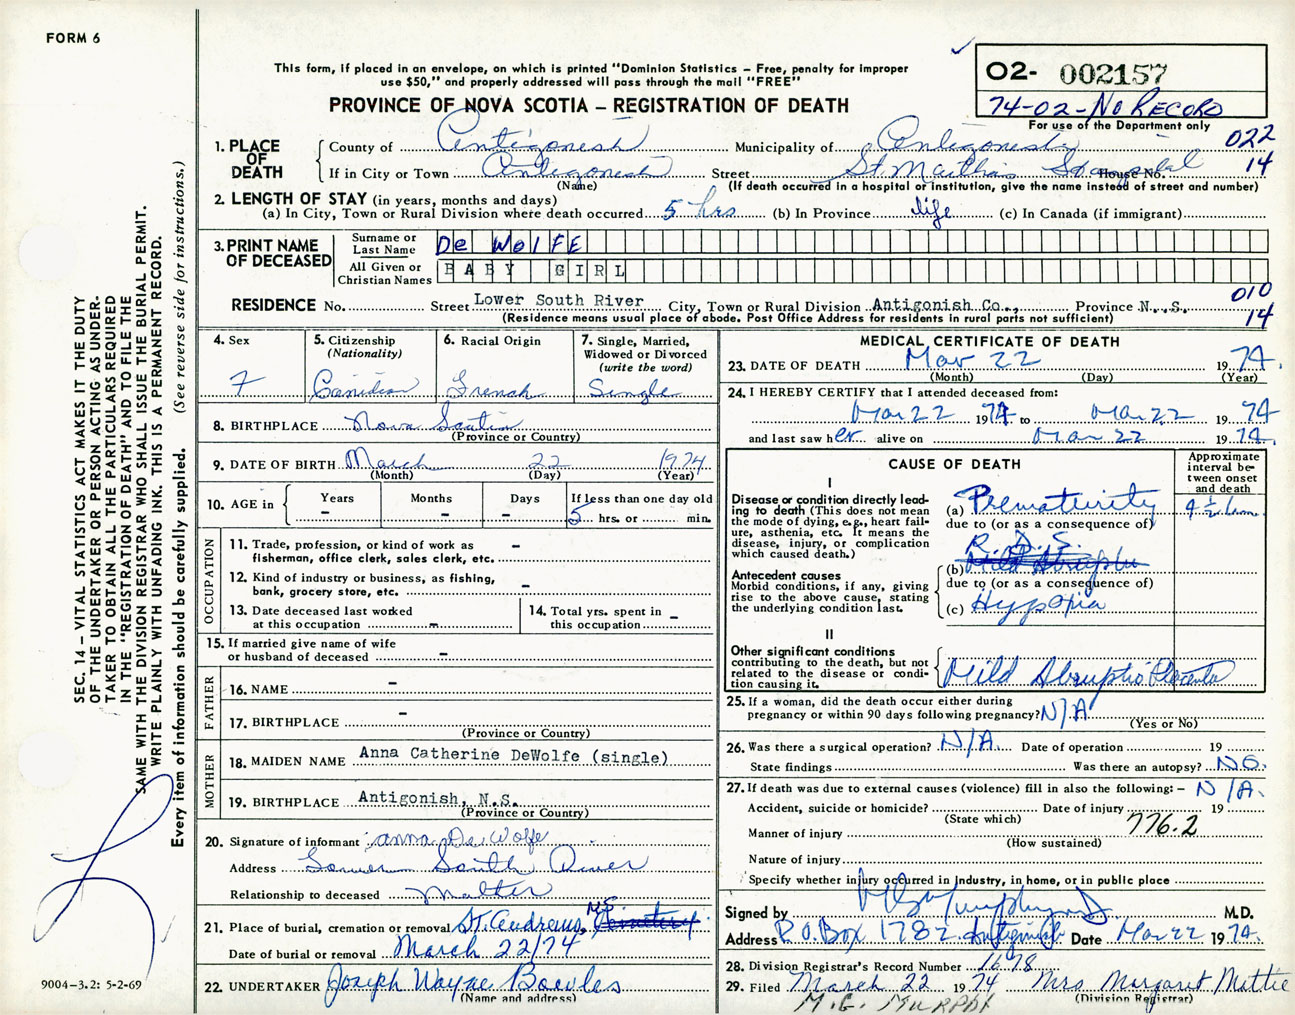 FORM 6
This form, if placed in an envelope, on which is printed "Dominion Statistics – Free, penalty for improper
use $50," and properly addressed will pass through the mail "FREE"
PROVINCE OF NOVA SCOTIA – REGISTRATION OF DEATH
02- 002157
74-02-No Record
For use of the Department only
022
14
1. PLACE OF DEATH
County of Antigonish Municipality of Antigonish
If in City or Town Antigonish Street St. Martha's Hospital House No.
(Name) (If death occurred in a hospital or institution, give the name instead of street and number)
2. LENGTH OF STAY (in years, months and days)
(a) In City, Town or Rural Division where death occurred 5 hrs (b) In Province life (c) In Canada (if immigrant)
3. PRINT NAME OF DECEASED
Surname or Last Name De WolFE
All Given or Christian Names BABY GIRL
010
14
RESIDENCE No. Street Lower South River City, Town or Rural Division Antigonish Co., Province N. S.
(Residence means usual place of abode. Post Office Address for residents in rural parts not sufficient)
4. Sex
F
5. Citizenship
(Nationality)
Canidian
6. Racial Origin
French
7. Single, Married,
Widowed or Divorced
(write the word)
Single
8. BIRTHPLACE Nova Scotia
(Province or Country)
9. DATE OF BIRTH March 22 1974
(Month) (Day) (Year)
10. AGE in
Years Months Days If less than one day old
- - - 5 hrs. or min.
OCCUPATION
11. Trade, profession, or kind of work as
fisherman, office clerk, sales clerk, etc. -
12. Kind of industry or business, as fishing,
bank, grocery store, etc. -
13. Date deceased last worked
at this occupation -
14. Total yrs. spent in
this occupation -
15. If married give name of wife
or husband of deceased -
FATHER
16. NAME -
17. BIRTHPLACE -
(Province or Country)
MOTHER
18. MAIDEN NAME Anna Catherine DeWolfe (single)
19. BIRTHPLACE Antigonish, N.S.
(Province or Country)
20. Signature of informant Anna De Wolfe
Address Lower South River
Relationship to deceased Mother
21. Place of burial, cremation or removal St. Andrews, N.S. Cemetery
Date of burial or removal March 22/74
22. UNDERTAKER Joseph Wayne Bowles
(Name and address)
MEDICAL CERTIFICATE OF DEATH
23. DATE OF DEATH Mar 22 1974.
(Month) (Day) (Year)
24. I HEREBY CERTIFY that I attended deceased from:
Mar 22 1974 to Mar 22 1974
and last saw her alive on Mar 22 1974.
CAUSE OF DEATH
Approximate
interval be-
tween onset
and death
I
Disease or condition directly lead-
ing to death (This does not mean
the mode of dying, e.g., heart fail-
ure, asthenia, etc. It means the
disease, injury, or complication
which caused death.)
(a) Prematurity
due to (or as a consequence of)
R.D.S.
Antecedent causes
Morbid conditions, if any, giving
rise to the above cause, stating
the underlying condition last.
(b)
due to (or as a consequence of)
(c) Hypoxia
II
Other significant conditions
contributing to the death, but not
related to the disease or condi-
tion causing it.
Mild Abruptio Placenta
25. If a woman, did the death occur either during
pregnancy or within 90 days following pregnancy? N/A
(Yes or No)
26. Was there a surgical operation? N/A. Date of operation 19
State findings Was there an autopsy? NO.
27. If death was due to external causes (violence) fill in also the following: – N/A.
Accident, suicide or homicide? Date of injury 19
(State which)
776.2
Manner of injury
(How sustained)
Nature of injury
Specify whether injury occurred in Industry, in home, or in public place
Signed by M.D.
Address P.O. Box 1782 Antigonish Date Mar 22 1974.
28. Division Registrar's Record Number 1678
29. Filed March 22 1974 Mrs Margaret Mattie
(Division Registrar)
M.G. MURPHY
SEC. 14 – VITAL STATISTICS ACT MAKES IT THE DUTY
OF THE UNDERTAKER OR PERSON ACTING AS UNDER-
TAKER TO OBTAIN ALL THE PARTICULARS REQUIRED
IN THE "REGISTRATION OF DEATH" AND TO FILE THE
SAME WITH THE DIVISION REGISTRAR WHO SHALL ISSUE THE BURIAL PERMIT.
WRITE PLAINLY WITH UNFADING INK. THIS IS A PERMANENT RECORD.
Every item of information should be carefully supplied. (See reverse side for instructions.)
9004-3.2: 5-2-69